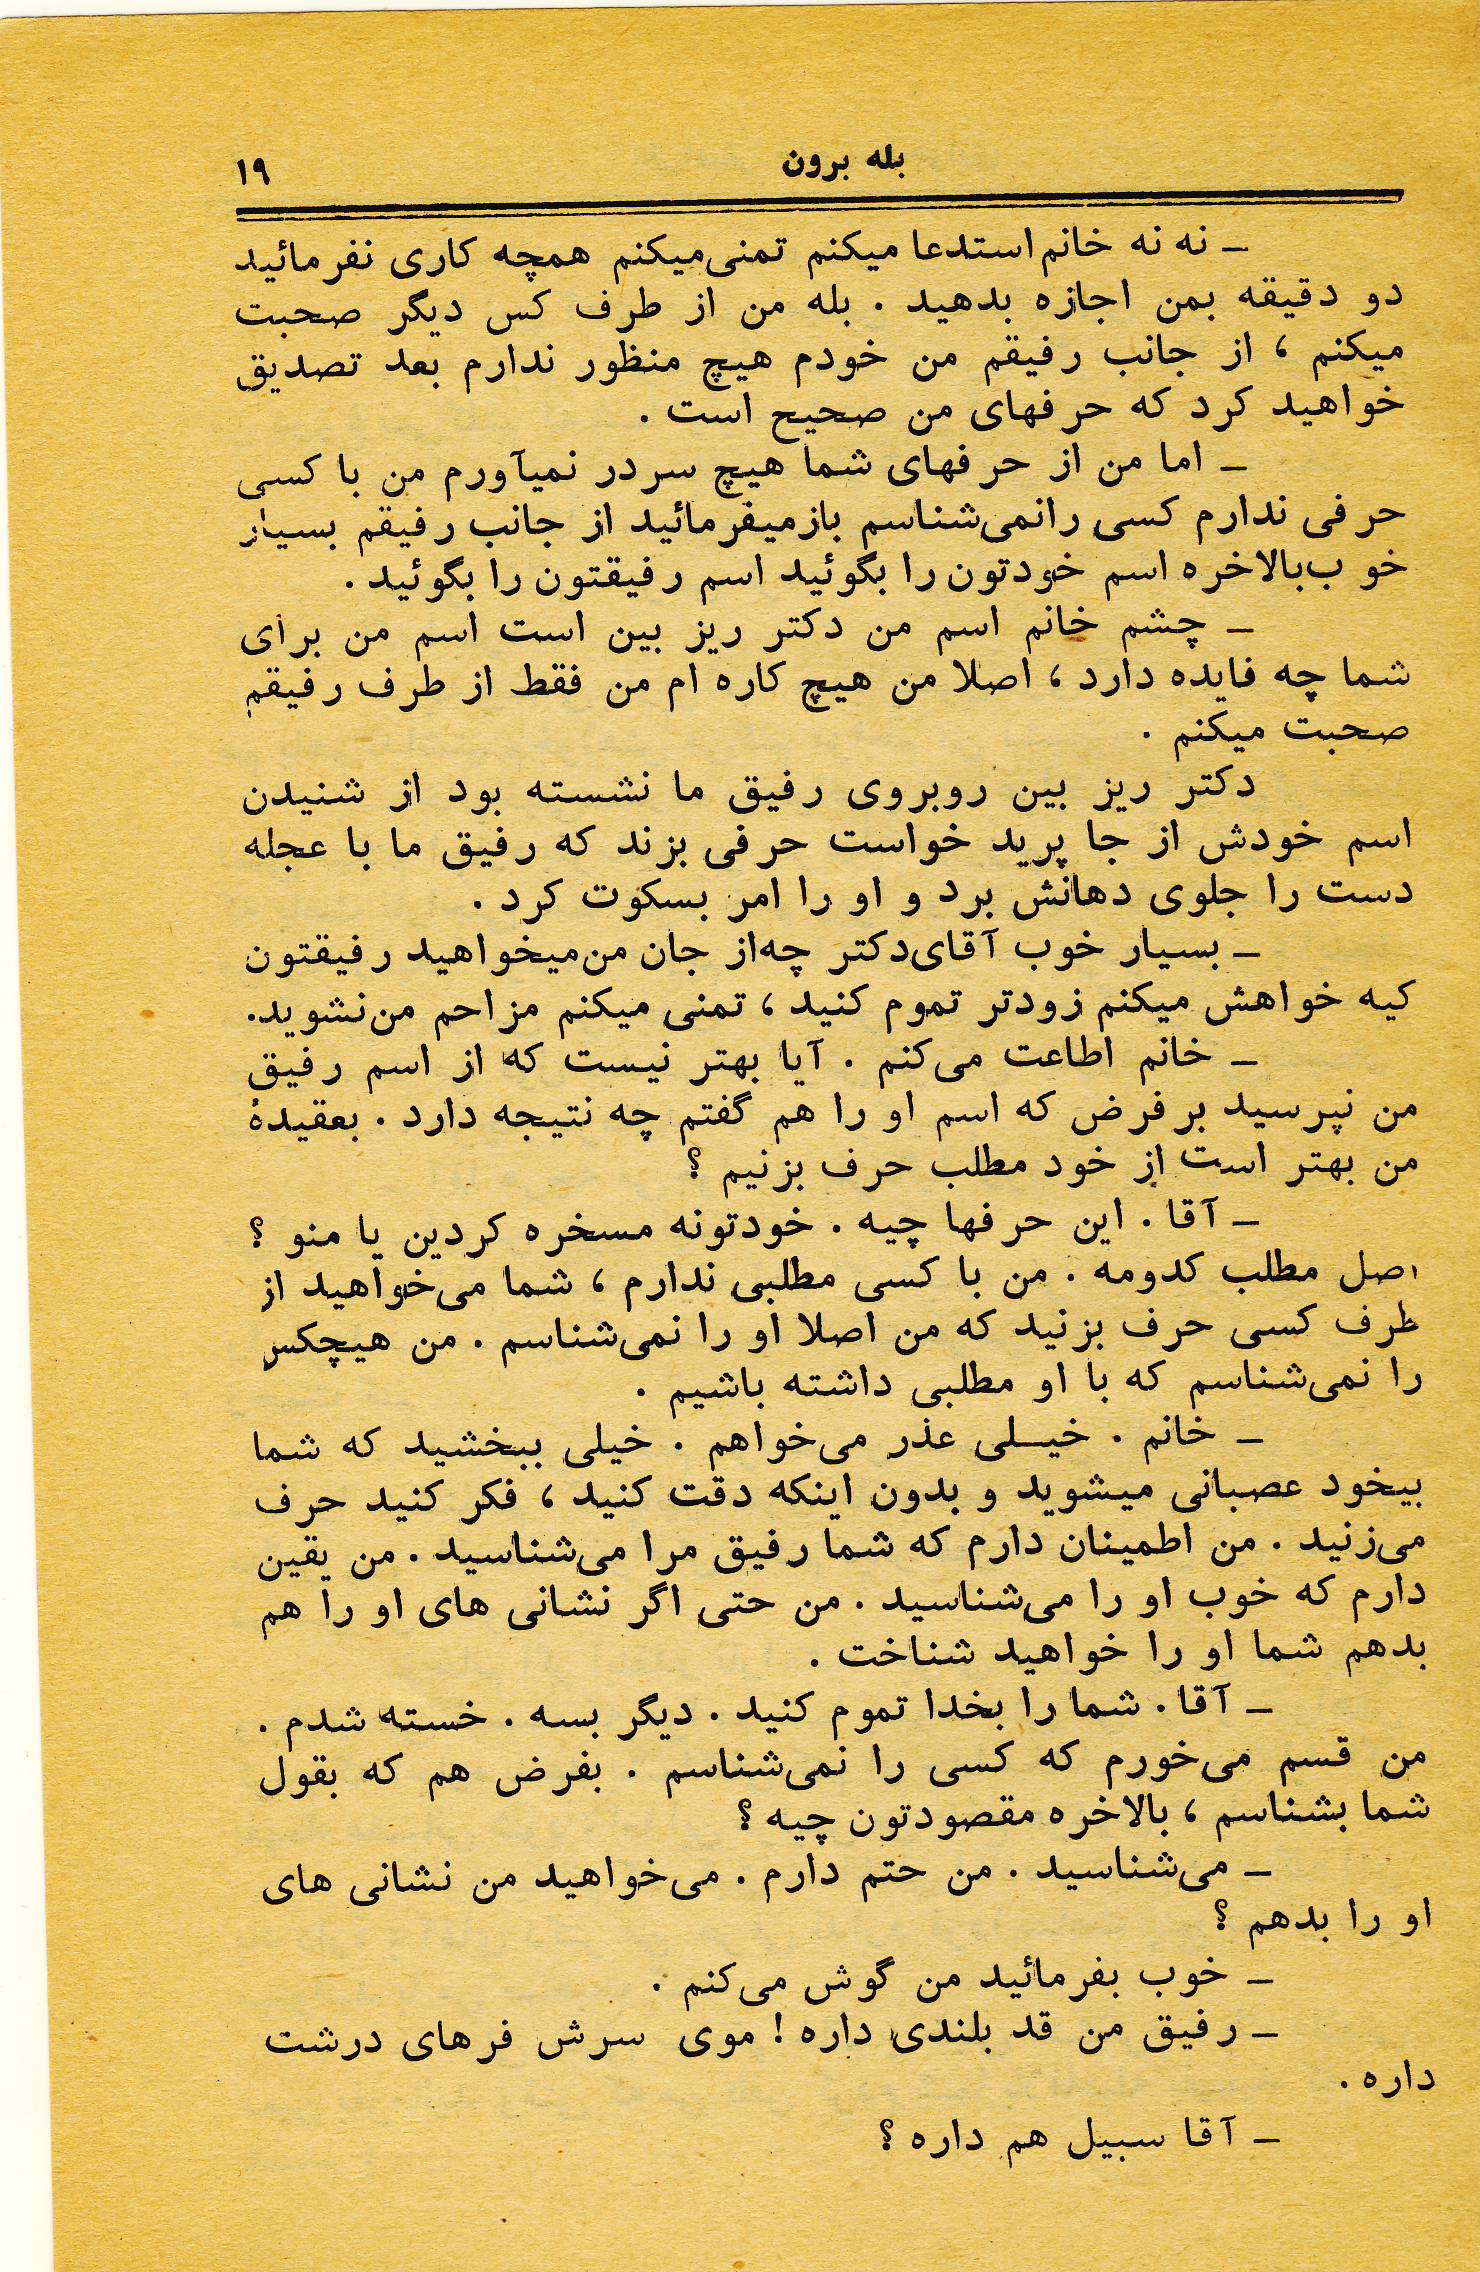 بله برون
۱۹
ـ نه نه خانم استدعا میکنم تمنی‌میکنم همچه کاری نفرمائید
دو دقیقه بمن اجازه بدهید . بله من از طرف کس دیگر صحبت
میکنم ، از جانب رفیقم من خودم هیچ منظور ندارم بعد تصدیق
خواهید کرد که حرفهای من صحیح است .
ـ اما من از حرفهای شما هیچ سردر نمیآورم من با کسی
حرفی ندارم کسی رانمی‌شناسم بازمیفرمائید از جانب رفیقم بسیار
خو ب‌بالاخره اسم خودتون را بگوئید اسم رفیقتون را بگوئید .
ـ چشم خانم اسم من دکتر ریز بین است اسم من برای
شما چه فایده دارد ، اصلا من هیچ کاره ام من فقط از طرف رفیقم
صحبت میکنم .
دکتر ریز بین روبروی رفیق ما نشسته بود از شنیدن
اسم خودش از جا پرید خواست حرفی بزند که رفیق ما با عجله
دست را جلوی دهانش برد و او را امر بسکوت کرد .
ـ بسیار خوب آقای‌دکتر چه‌از جان من‌میخواهید رفیقتون
کیه خواهش میکنم زودتر تموم کنید ، تمنی میکنم مزاحم من‌نشوید.
ـ خانم اطاعت می‌کنم . آیا بهتر نیست که از اسم رفیق
من نپرسید برفرض که اسم او را هم گفتم چه نتیجه دارد . بعقیدهٔ
من بهتر است از خود مطلب حرف بزنیم ؟
ـ آقا . این حرفها چیه . خودتونه مسخره کردین یا منو ؟
اصل مطلب کدومه . من با کسی مطلبی ندارم ، شما می‌خواهید از
طرف کسی حرف بزنید که من اصلا او را نمی‌شناسم . من هیچکس
را نمی‌شناسم که با او مطلبی داشته باشیم .
ـ خانم . خیلی عذر می‌خواهم . خیلی ببخشید که شما
بیخود عصبانی میشوید و بدون اینکه دقت کنید ، فکر کنید حرف
می‌زنید . من اطمینان دارم که شما رفیق مرا می‌شناسید . من یقین
دارم که خوب او را می‌شناسید . من حتی اگر نشانی های او را هم
بدهم شما او را خواهید شناخت .
ـ آقا . شما را بخدا تموم کنید . دیگر بسه . خسته شدم .
من قسم می‌خورم که کسی را نمی‌شناسم . بفرض هم که بقول
شما بشناسم ، بالاخره مقصودتون چیه ؟
ـ می‌شناسید . من حتم دارم . می‌خواهید من نشانی های
او را بدهم ؟
ـ خوب بفرمائید من گوش می‌کنم .
ـ رفیق من قد بلندی داره ! موی سرش فرهای درشت
داره .
ـ آقا سبیل هم داره ؟